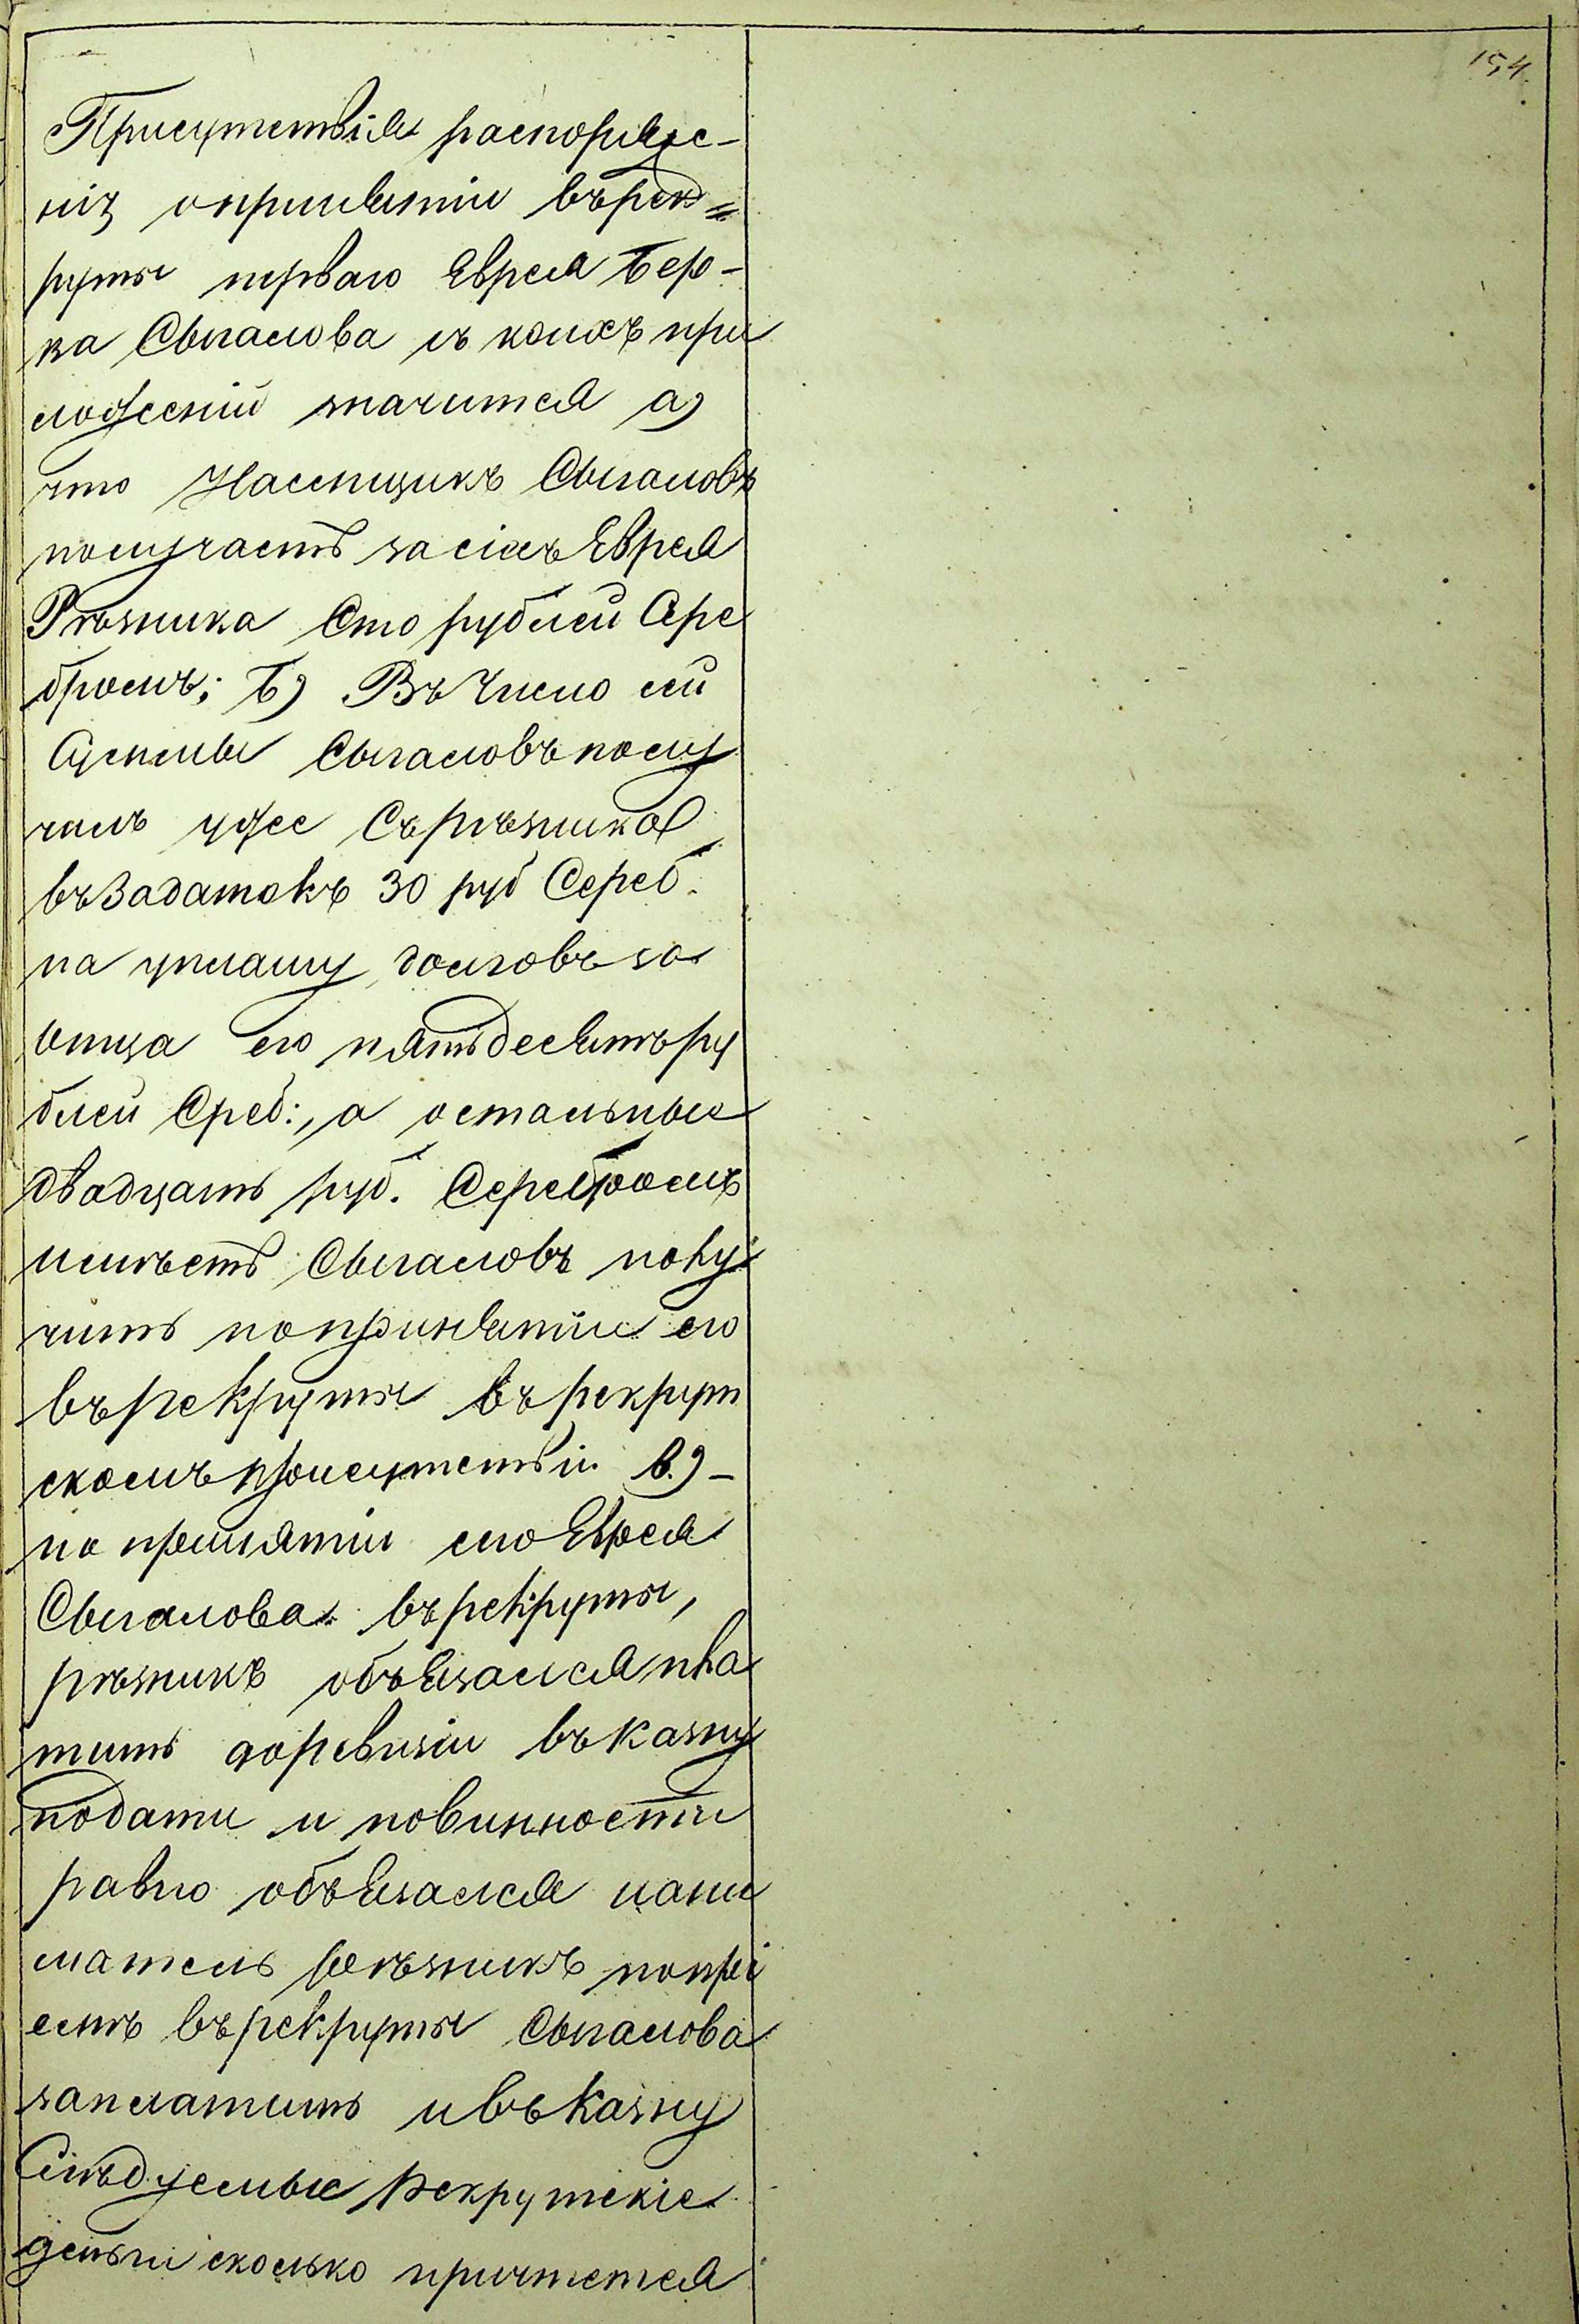 154.
Присутствія распоряже-
нія опринятіи въ рек=
руты перваго Еврея Бер-
ка Свигалова съ коихъ при
ложеній значится а)
что Наемщикъ Свигаловъ
получаетъ за сіихъ Еврея
Рѣзника Сто рублей Сере
бромъ; Б) Въ Число сей
Суммы Свигаловъ полу
чилъ уже Съ рѣзника
въ Задатокъ 30 руб Сереб.
на уплату долговъ за
отца его пятьдесятъ ру
блей Среб:, а остальные
двадцать руб. Серебромъ
имѣетъ Свигаловъ полу
чить по принятіи его
въ рекруты въ рекрут
скомъ присутствіи в.) -
по принятіи его Еврея
Свигалова въ рекруты,
рѣзникъ объязался пла
тить до ревизіи въ казну
подати и повинности
равно объязался нани
матель рѣзникъ по прі
емѣ въ рекруты Свигалова
заплатить и въ Казну
Слѣдуемые Рекрутскіе
деньги сколько причтется